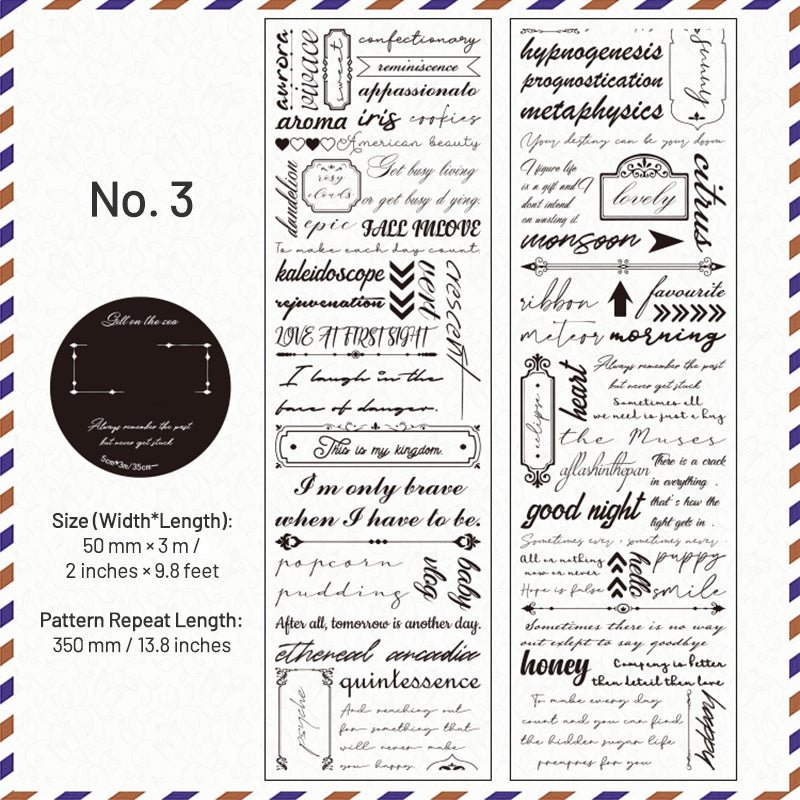 No. 3
Still on the sea
Always remember the past
but never get stuck
5cm*3m/35cm
Size (Width*Length):
50 mm × 3 m /
2 inches × 9.8 feet
Pattern Repeat Length:
350 mm / 13.8 inches
aurora
vivace
sweet
confectionary
reminiscence
appassionato
aroma iris cookies
American beauty
dandelion
rosy
clouds
Get busy living
or get busy dying.
epic FALL INLOVE
To make each day count
kaleidoscope
rejuvenation
vert
crescent
LOVE AT FIRST SIGHT
I laugh in the
face of danger.
This is my kingdom.
I'm only brave
when I have to be.
popcorn
pudding
vlog
baby
After all, tomorrow is another day.
ethereal arcadia
psyche
quintessence
And reaching out
for something that
will never make
you happy.
hypnogenesis
prognostication
metaphysics
Sunny
Your destiny can be your doom
I figure life
is a gift and I
don't intend
on wasting it
lovely
citrus
monsoon
ribbon
favourite
meteor morning
heart
Always remember the past
but never get stuck
Sometimes all
we need is just a hug
the Muses
aflashinthepan
There is a crack
in everything.
that's how the
light gets in.
good night
Sometimes ever, sometimes never.
All or nothing
now or never
Hope is false
hello
puppy
smile
Sometimes there is no way
out except to say goodbye
honey
Company is better
than detail than love
To make every day
count and you can find
the hidden sugar life
preapres for you
happy